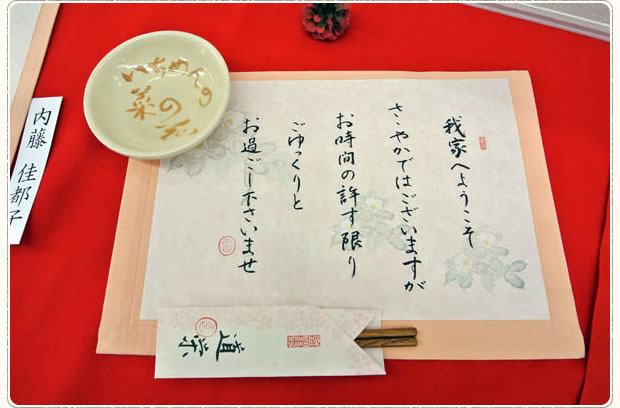 我家へようこそ
さゝやかではございますが
お時間の許す限り
ごゆっくりと
お過ごし下さいませ
いちめんの
菜の花
内藤 佳都子
道栄